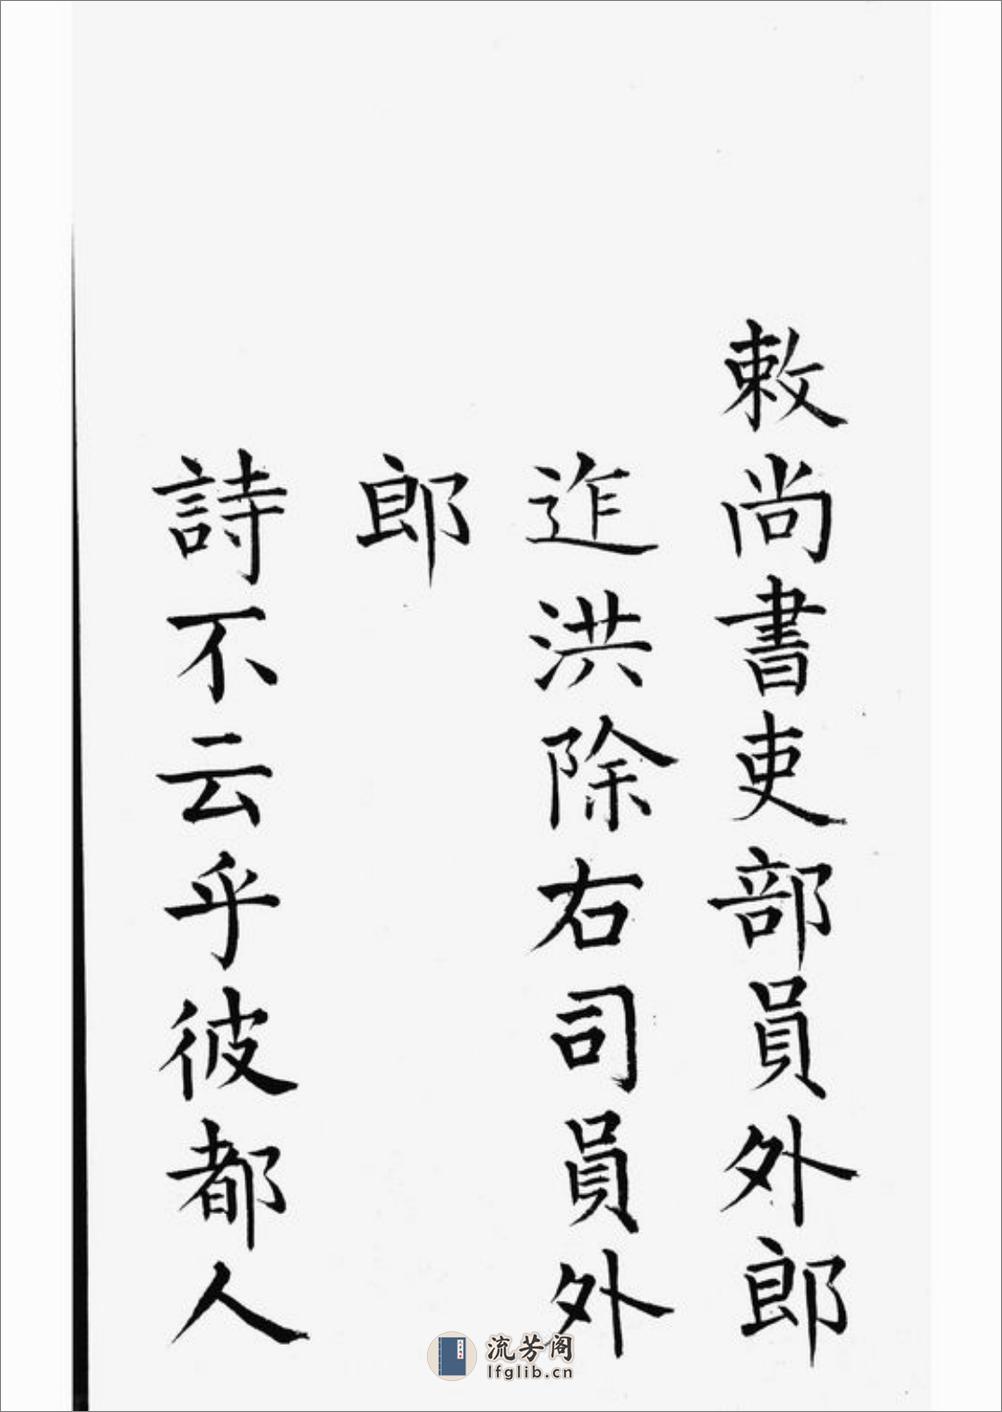 敕尚書吏部員外郎
迮洪除右司員外
郎
詩不云乎彼都人
流芳阁
lfglib.cn